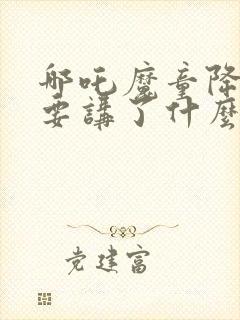 哪吒魔童降
要講了什麼
党建富